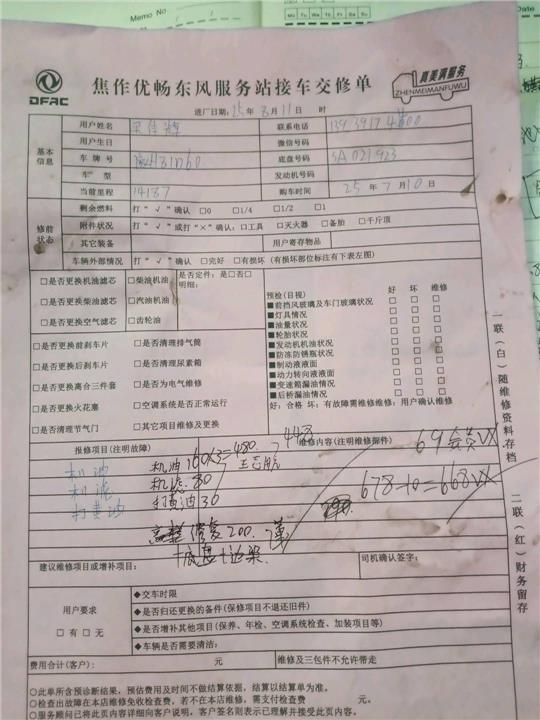 Memo No.
Mo Tu We Th Fr Sa Su
Date
DFAC
焦作优畅东风服务站接车交修单
真美满服务
ZHENMEIMANFUWU
进厂日期: 25年8月11日 时
基本信息
用户姓名
联系电话
用户生日
微信号码
车牌号
底盘号码 SA021923
车型
发动机号码
当前里程 14187
购车时间 25年7月10日
修前状态
剩余燃料 打“√”确认 □0 □1/4 □1/2 □1
附件状况 打“√”或打“×”确认: □工具 □灭火器 □备胎 □千斤顶
其它装备
用户寄存物品
车辆外部情况 打“√”确认 □完好 □有损坏 (有损坏部位标注有下表左图)
□是否更换机油滤芯 □柴油机油
□是否更换柴油滤芯 □汽油机油
□是否更换空气滤芯 □齿轮油
是否定件: 是□否□
明细:
□是否更换前刹车片 □是否清理排气筒
□是否更换后刹车片 □是否清理尿素箱
□是否更换离合三件套 □是否为电气维修
□是否更换火花塞 □空调系统是否正常运行
□是否清理节气门 □其它项目维修及更换
预检(目视) 好 坏 维修
■前挡风玻璃及车门玻璃状况 □ □ □
■灯具情况 □ □ □
■油量状况 □ □ □
■轮胎状况 □ □ □
■发动机机油状况 □ □ □
■防冻防锈瓶状况 □ □ □
■制动液液面 □ □ □
■动力转向液液面 □ □ □
■变速箱漏油情况 □ □ □
■后桥漏油情况 □ □ □
好: 合格 坏: 有故障需维修维修: 用户确认维修
一联(白)随维修资料存档
二联(红)财务留存
报修项目(注明故障)
维修内容(注明维修附件)
机油
机滤
打黄油
机油: 160X3=480
机滤: 80
打黄油 30
200
678-10=668
建议维修项目或增补项目:
司机确认签字:
用户要求
□有 □无
◆交车时限
◆是否归还更换的备件(保修项目不退还旧件)
◆是否增补其他项目(保养、年检、空调系统检查、加装项目等)
◆车辆是否需要清洁:
费用合计(客户): 元
维修及三包件不允许带走
○此单所含预诊断结果,预估费用及时间不做结算依据,结算以结算单为准。
○检查出故障在本店维修免收检查费,若不在本店维修,需支付检查费 元。
○服务顾问已将此页内容详细向客户说明,客户签名则表示已理解并接受此页内容。